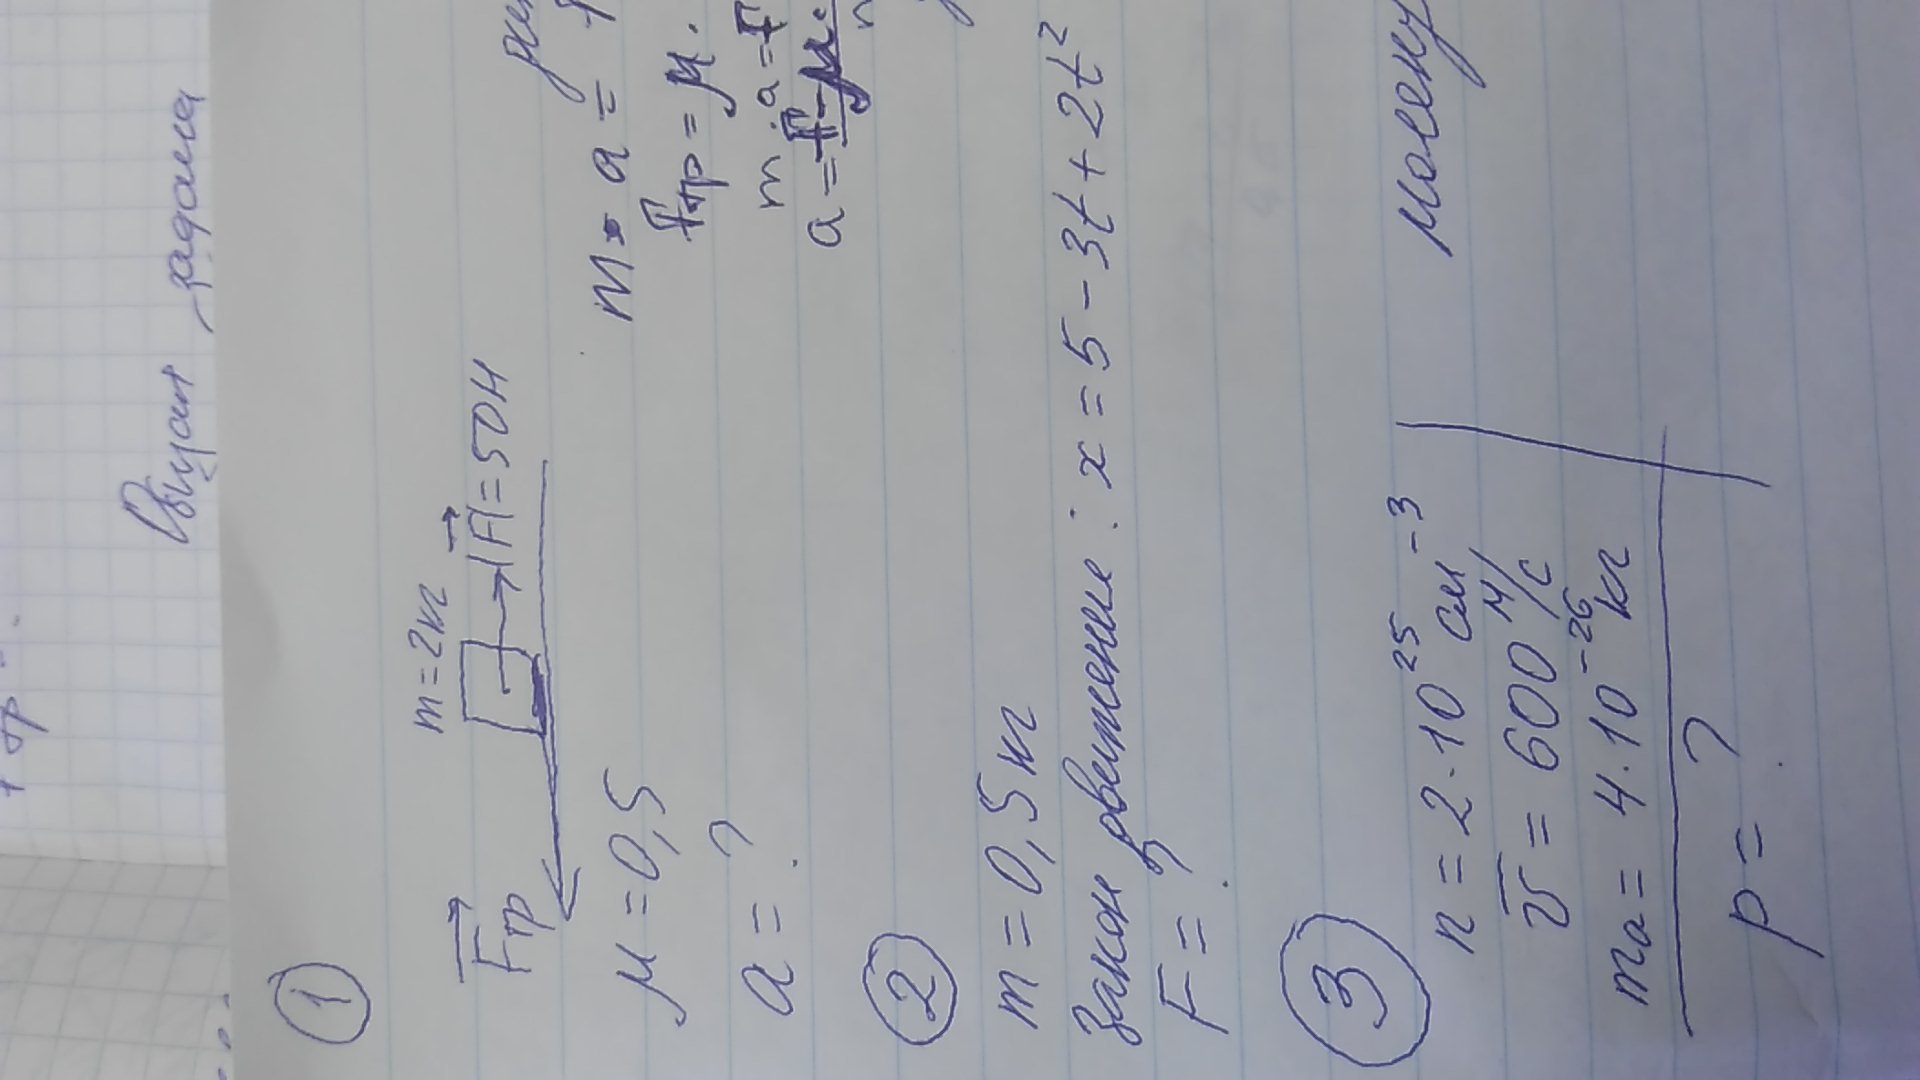 задача
①
m=2кг
Fтр
|F|=50Н
μ=0,5
a=?
m·a=
Fтр=μ·
m·a=F
a=F-μ·
②
m=0,5кг
Закон движения: x=5-3t+2t²
F=?
③
n=2·10²⁵ см⁻³
v̅=600 м/с
mₐ=4·10⁻²⁶ кг
p=?
молеку